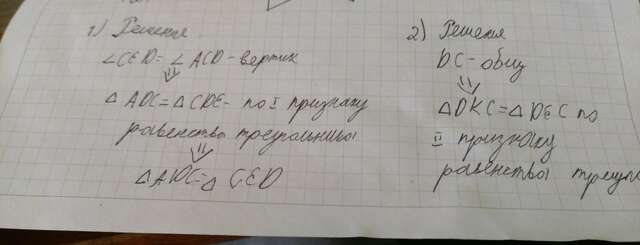 1) Решения
∠CED = ∠ACD - вертик
⇓
△ADC = △CDE - по I признаку
равенства треугольника
⇓
△ADC = △CED
2) Решения
DC - общ
⇓
△DKC = △DEC по
II признаку
равенства треуг